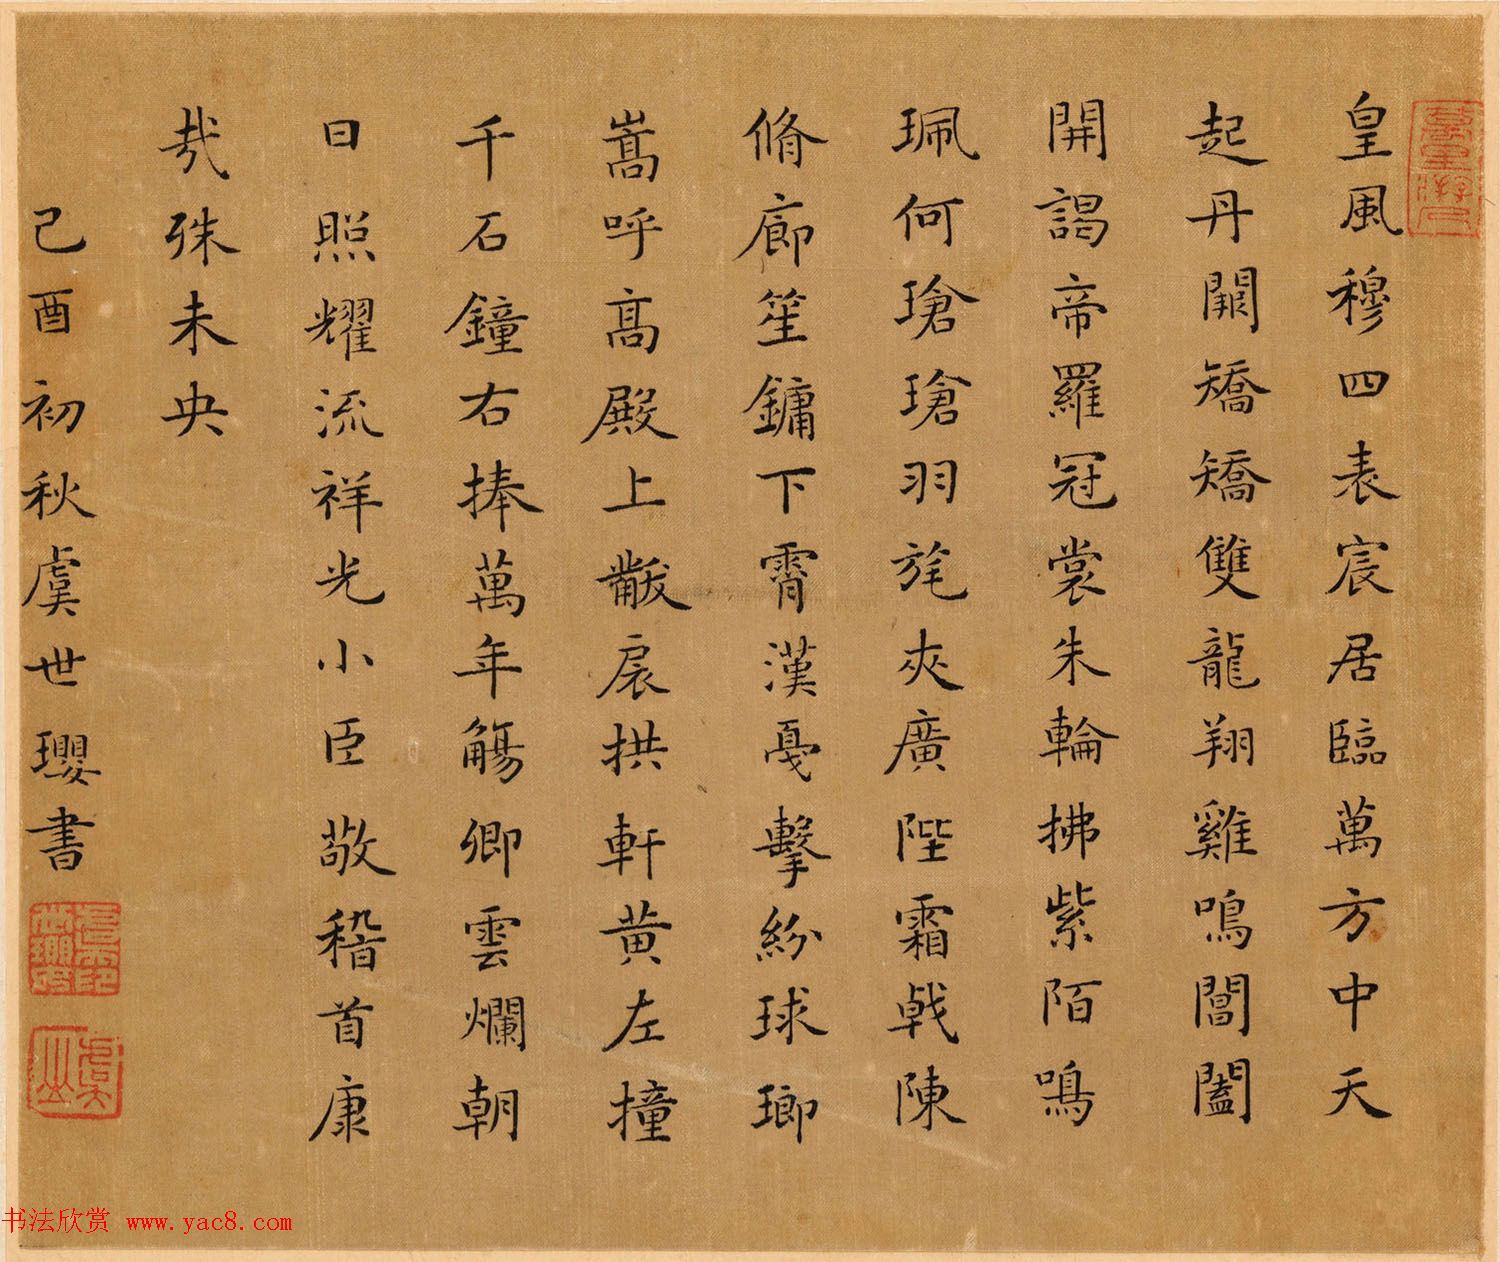 皇風穆四表宸居臨萬方中天
起丹闕矯矯雙龍翔雞鳴閶闔
開謁帝羅冠裳朱輪拂紫陌鳴
珮何瑲瑲羽旄夾廣陛霜戟陳
脩廊笙鏞下霄漢戞擊紛球瑯
嵩呼髙殿上黻扆拱軒黃左撞
千石鐘右捧萬年觴卿雲爛朝
日照耀流祥光小臣敬稽首康
哉殊未央
己酉初秋虞世瓔書
书法欣赏 www.yac8.com